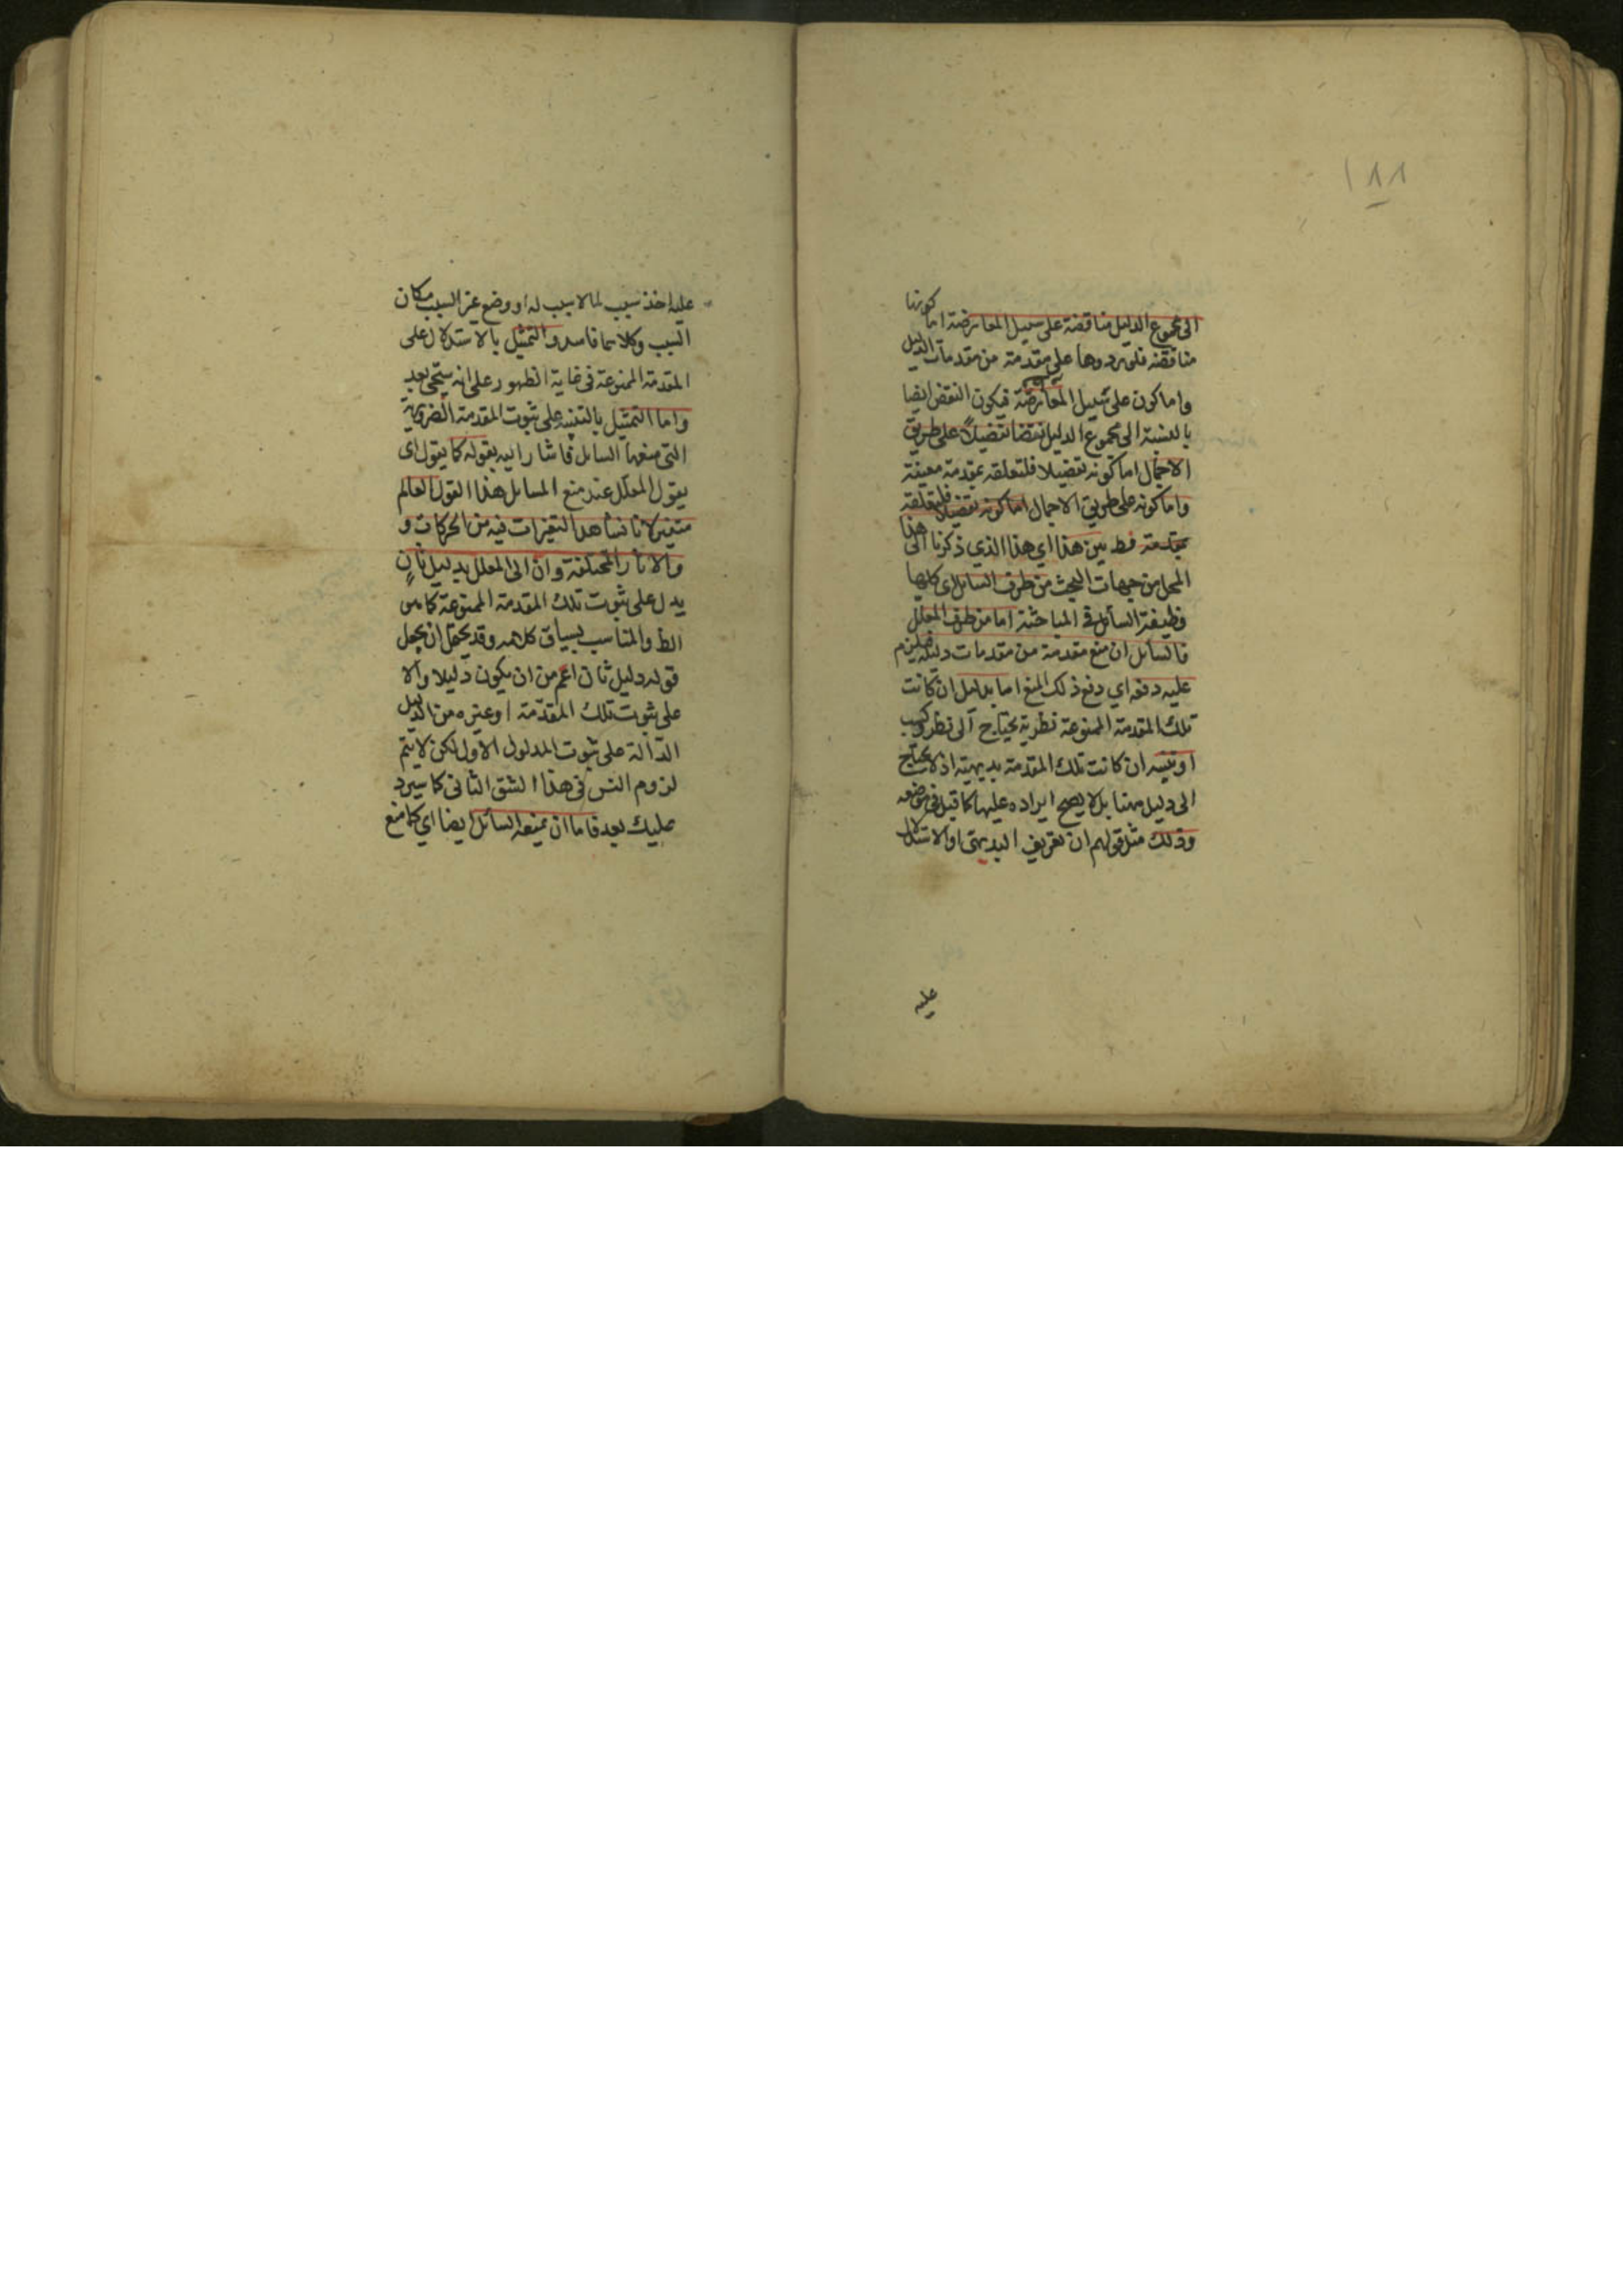 ١٨٨
الى مجموع الدليل مناقضة على سبيل المعارضة اما كونها
مناقضة فلورودها على مقدمة من مقدمات الدليل
واما كون على سبيل المعارضة فيكون النقض ايضا
بالنسبة الى مجموع الدليل نقضا تفضيلا على طريق
الاجمال اما كونه تفضيلا فلتعلقه بمقدمة معينة
واما كونه على طريق الاجمال اما كونه تفضيلا فلتعلقه
بمقدمة فظ بين هذا اي هذا الذي ذكرنا الى هذا
المحل من جهات البحث من طرف السائل اى كلها
وظيفة السائل فى المباحثة اما من طرف المعلل
فالسائل ان منع مقدمة من مقدمات دليله فيلزم
عليه دفعه اي دفع ذلك المنع اما بدليل ان كانت
تلك المقدمة الممنوعة نظرية يحتاج الى نظر وكسب
او تنبيه ان كانت تلك المقدمة بديهية اذ لا تحتاج
الى دليل مهنا بل لا يصح ايراده عليها كما قيل فى موضعه
وذلك مثل قولهم ان تعريف البديهى او الاستدلال
عليه
عليه اخذ سبب لما لا سبب له او وضع غير السبب مكان
السبب وكلاهما فاسد والتمثيل بالاستدلال على
المقدمة الممنوعة فى غاية الظهور على انه سيجى بعد
واما التمثيل بالتنبيه على ثبوت المقدمة الضرورية
التى منعها السائل فاشار اليه بقوله كما يقول اى
يقول المعلل عند منع المسائل هذا القول العالم
متغير لانا نشاهد التغيرات فيه من الحركات و
والاثار المختلفة وان اتى المعلل بدليل ثانٍ
يدل على ثبوت تلك المقدمة الممنوعة كما هو
الظ والمناسب بسياق كلامه وقد يحتمل ان يجعل
قوله دليل ثان اعم من ان يكون دليلا والا
على ثبوت تلك المقدمة او غيره من الدليل
الدالة على ثبوت المدلول الاول لكن لا يتم
لزوم التس فى هذا الشق الثانى كما سيرد
عليك بعد فاما ان يمنعه السائل ايضا اي كما منع